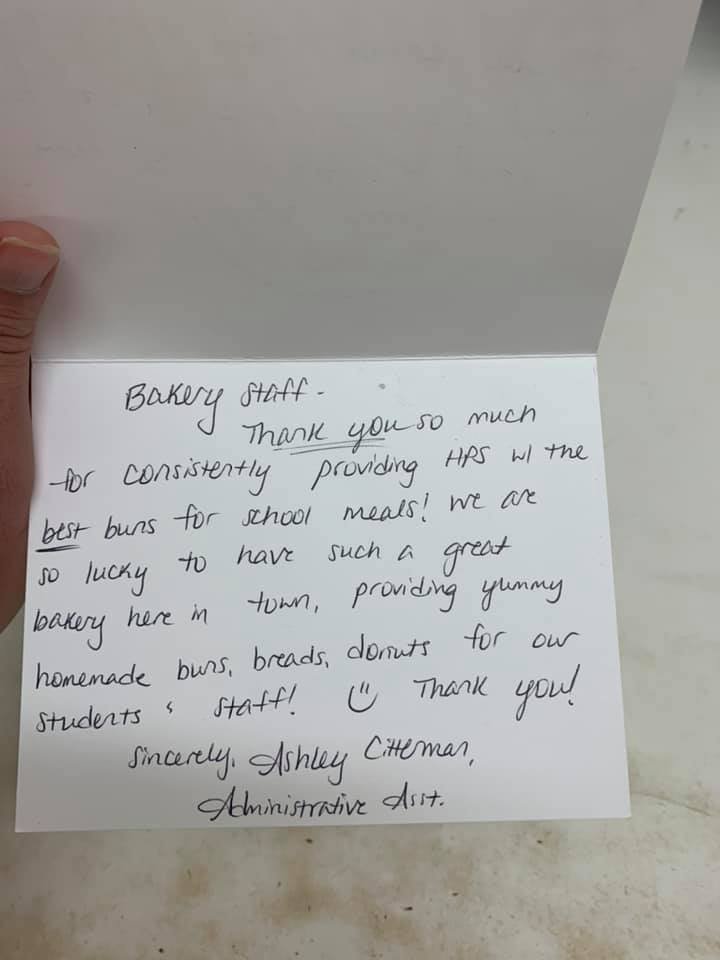 Bakery Staff -
Thank you so much
for consistently providing HPS w/ the
best buns for school meals! We are
so lucky to have such a great
bakery here in town, providing yummy
homemade buns, breads, donuts for our
students & staff! Thank you!
Sincerely, Ashley
Administrative Asst.